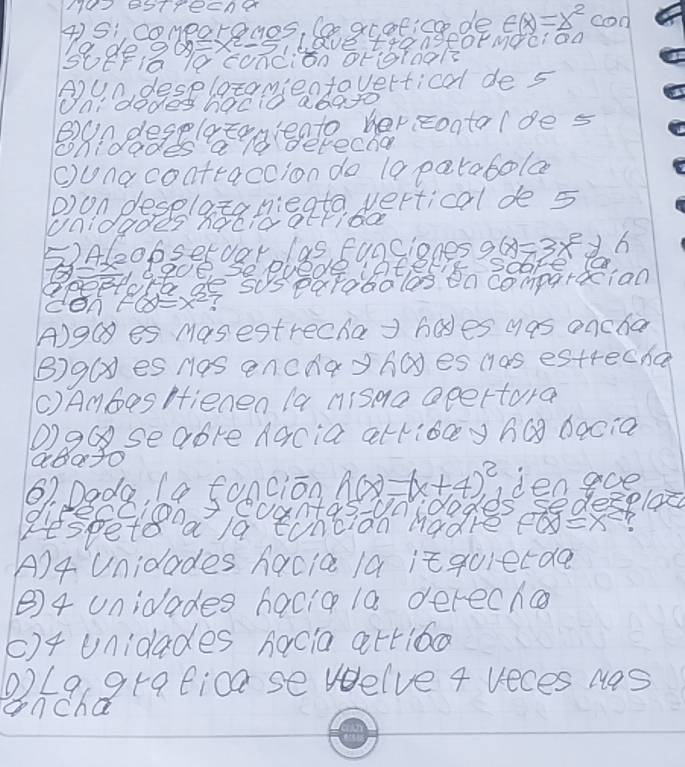 mas estrecha
4) Si comparamos la grafica de f(x)=x² con
la de g(x)=x²-5, ¿que transformación
sufrio la función original?
A) Un desplazamiento vertical de 5
unidades hacia abajo
B) Un desplazamiento horizontal de 5
unidades a la derecha
C) Una contraccion de la parabola
D) Un desplazamiento vertical de 5
unidades hacia arriba
5) Al observar las funciones g(x)=3x² y h
¿que se puede inferir sobre la
apertura de sus parabolas en comparacian
con f(x)=x²?
A) g(x) es mas estrecha y h(x) es mas ancha
B) g(x) es mas ancha y h(x) es mas estrecha
C) Ambas tienen la misma apertura
D) g(x) se abre hacia arriba y h(x) hacia
abajo
6) Dada la función h(x)=(x+4)², ¿en que
dirección y cuantas unidades se desplaza
respeto a la función madre f(x)=x²?
A) 4 unidades hacia la izquierda
B) 4 unidades hacia la derecha
C) 4 unidades hacia arriba
D) La grafica se vuelve 4 veces mas
ancha